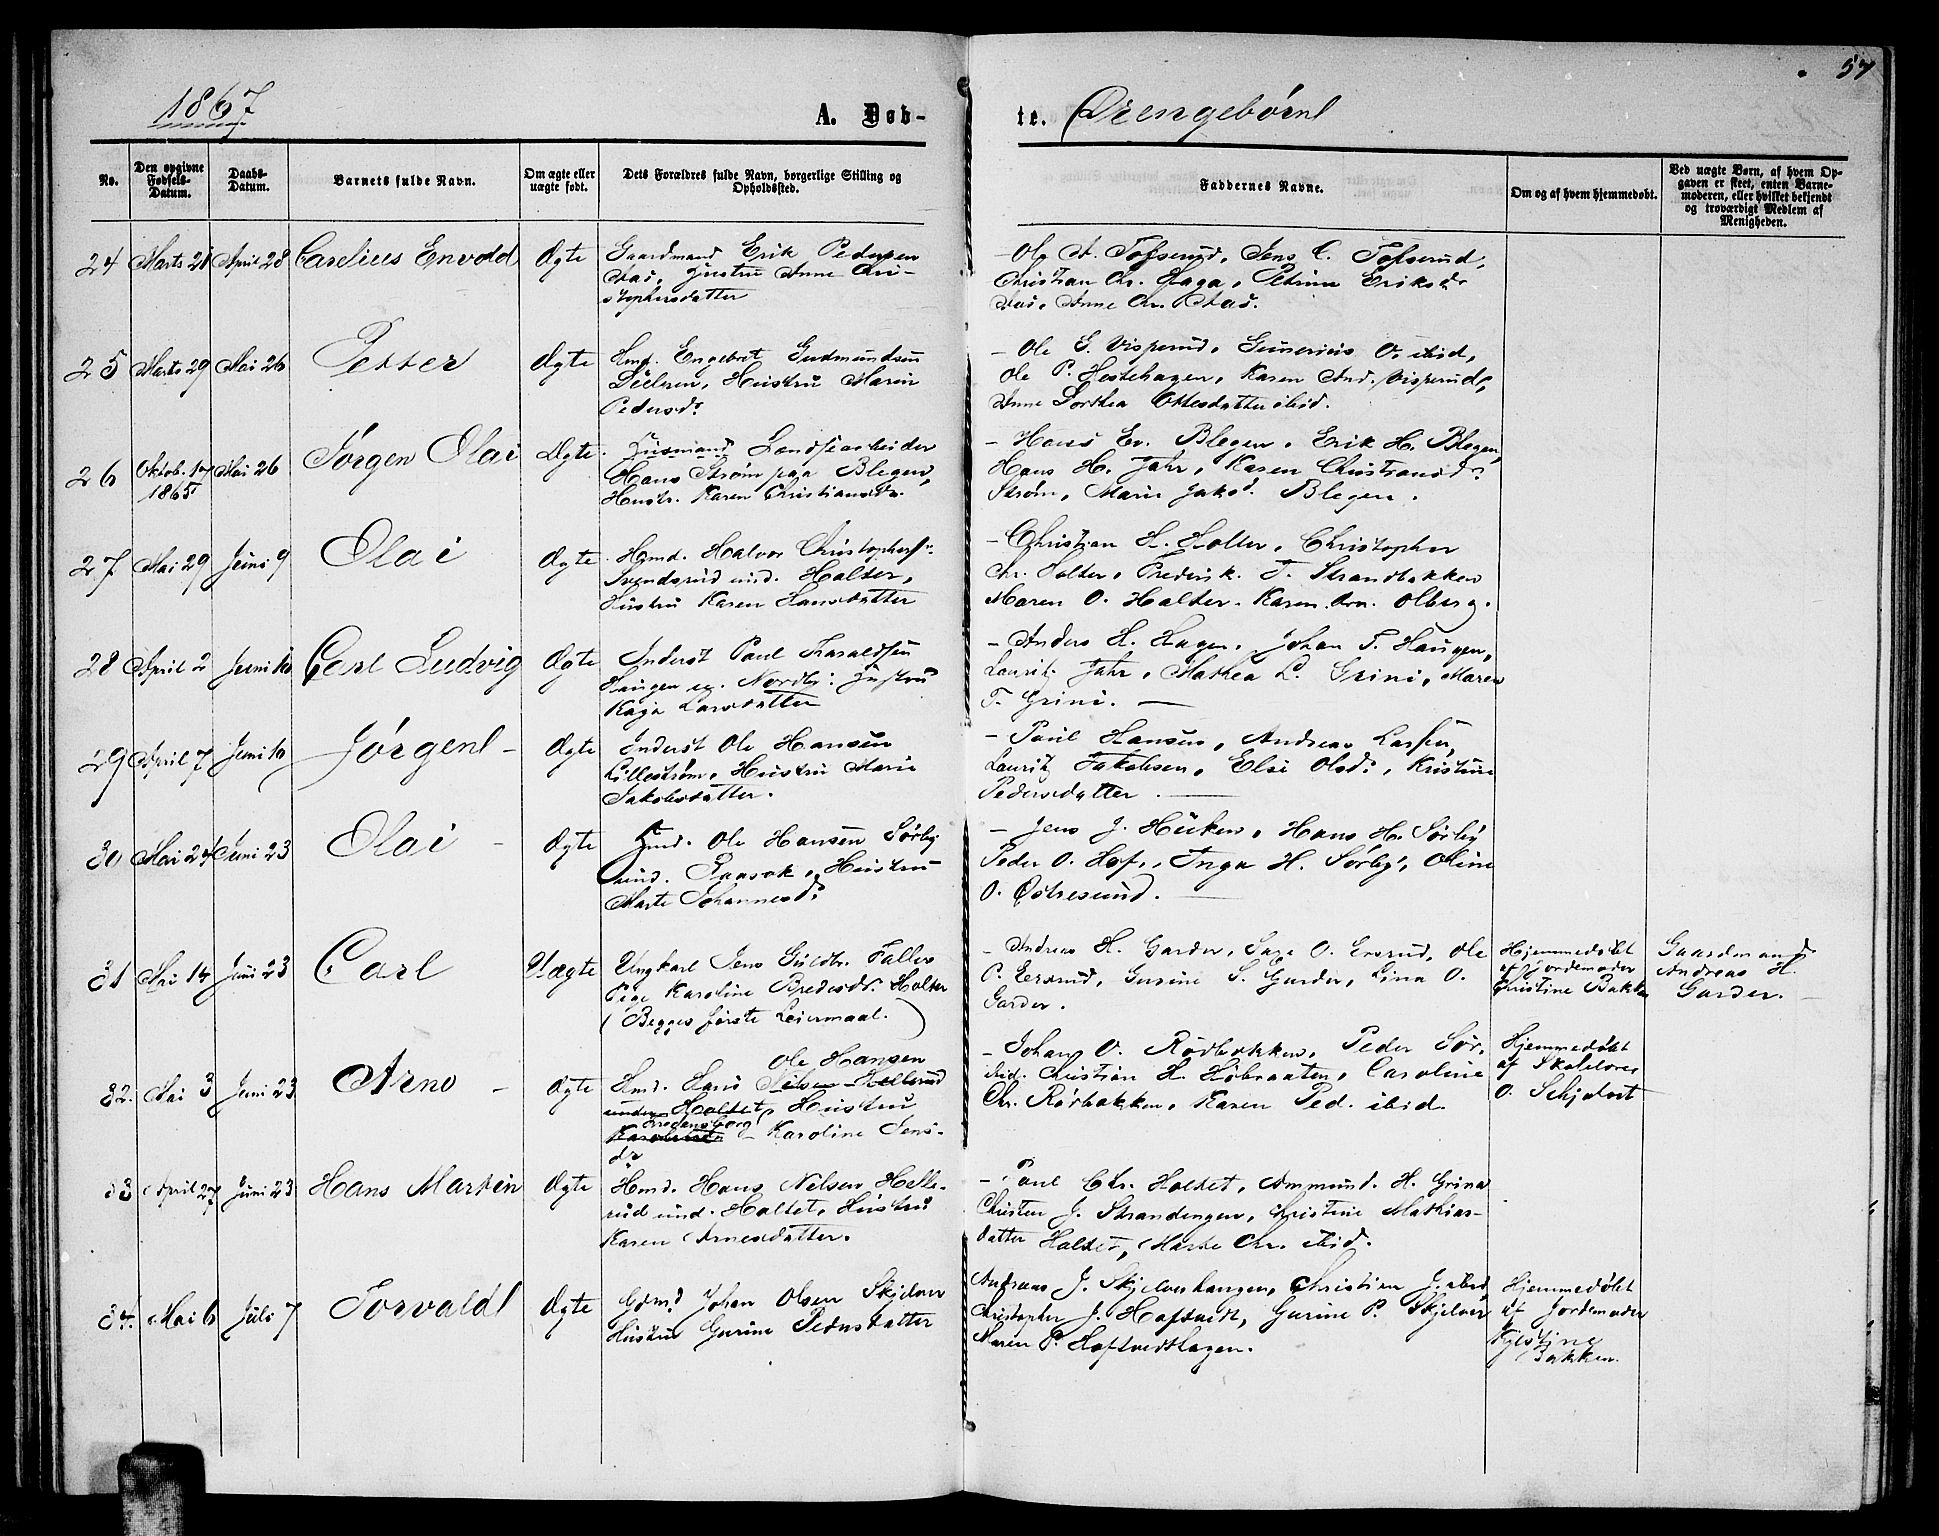 57
1867
A. Døb-
te. Drengebørn
No.
Den opgivne Fødsels-Datum.
Daabs-Datum.
Barnets fulde Navn.
Om ægte eller uægte født.
Dets Forældres fulde Navn, borgerlige Stilling og Opholdssted.
Faddernes Navne.
Om og af hvem hjemmedøbt.
Ved uægte Børn, af hvem Opgaven er skeet, enten Barnemoderen, eller hvilket bekjendt og troværdigt Medlem af Menigheden.
24 Marts 21 April 28 Carelius Envold Ægte
Gaardmand Erik Pedersen
Aas, Hustru Anne Chri-
stophersdatter
- Ole A. Tofserud, Jens C. Tofserud,
Christian Chr. Haga, Petrine Eriksd.
Aas, Anne Chr. Aas.
25 Marts 29 Mai 26 Petter Ægte
Hmd. Engebret Gudmundsen
Hustru Maren
Pedersd.
- Ole G. Visperud, Gunerius O. ibid,
Ole P. Hestehagen, Karen And. Visperud,
Anne Dorthea Ottesdatter ibid.
26 Oktob. 17 1865 Mai 26 Jørgen Olai Ægte
Husmand Landsearbeider
Hans Strøm paa Blegen,
Hustr. Karen Christiansdr.
- Hans Er. Blegen, Erik H. Blegen,
Hans H. Jahr, Karen Christiansdr.
Strøm, Marie Jaksd. Blegen.
27 Mai 29 Juni 9 Olai Ægte
Hmd. Halvor Christophers:
Svendsrud und. Halter,
Hustru Karen Hansdatter
- Christian H. Holter, Christopher
Chr. Holter, Frederik T. Strandbakken
Maren O. Halter, Karen Olberg.
28 April 2 Juni 10 Carl Ludvig Ægte
Inderst Paul Haraldsen
Haugen eg. Nordbi: Hustru
Kaja Larsdatter
- Anders H. Hagen, Johan T. Haugen,
Lauritz Jahr, Mathea L. Grini, Maren
T. Grini.
29 April 7 Juni 10 Jørgen Ægte
Inderst Ole Hansen
Lillestrøm, Hustru Marie
Jakobsdatter.
- Paul Hansen, Andreas Larsen,
Lauritz Jakobsen, Else Olsd:, Kristine
Pedersdatter.
30 Mai 24 Juni 23 Olai Ægte
Hmd. Ole Hansen Sørby
und. Hustru
Marte Johannesd:
- Jens J. Hücken, Hans H. Sørby
Peder O. Hof, Inga H. Sørby, Oline
O. Østresund.
31 Mai 14 Juni 23 Carl Uægte
Ungkarl Jens Guldbr. Faller
Pige Karoline Bredesdr. Holter
(Begges første Leiermaal.)
- Andreas H. Garder, O. Ersrud, Ole
P. Ersrud, Gurine S. Garder, Lina O.
Garder.
Hjemmedøbt
af Jordemoder
Christine Bakken
Gaardmand
Andreas H.
Garder.
32. Mai 3 Juni 23 Arno Ægte
Ole Hansen
Hmd. Hans Nilsen Hellerud
under Holtet, Hustru
Fredensborg
Karoline Jens-
dr
- Johan O. Rødbakken, Peder Sør.
ibid. Christian H. Høbraaten, Caroline
Chr. Rørbakken, Karen Ped. ibid.
Hjemmedøbt
af Skolelærer
O. Schjatvet
33 April 27 Juni 23 Hans Martin Ægte
Hmd. Hans Nelsen Helle-
rud und. Holtet, Hustru
Karen Arnesdatter.
- Paul Chr. Holtet, Ammund H. Grina
Christen J. Strandengen, Christine Mathias-
datter Holtet, Marte Chr. ibid.
34. Mai 6 Juli 7 Torvald Ægte
Gdmd Johan Olsen Skjelver
Hustru Gurine Pedersdatter
Andreas J. Skjelverhaugen, Christian J. ibid,
Christopher J. Haftvedt, Gurine P. Skjelver
Maren P. Hoftvedthagen.
Hjemmedøbt
af Jordemoder
Kjestine
Bakken.